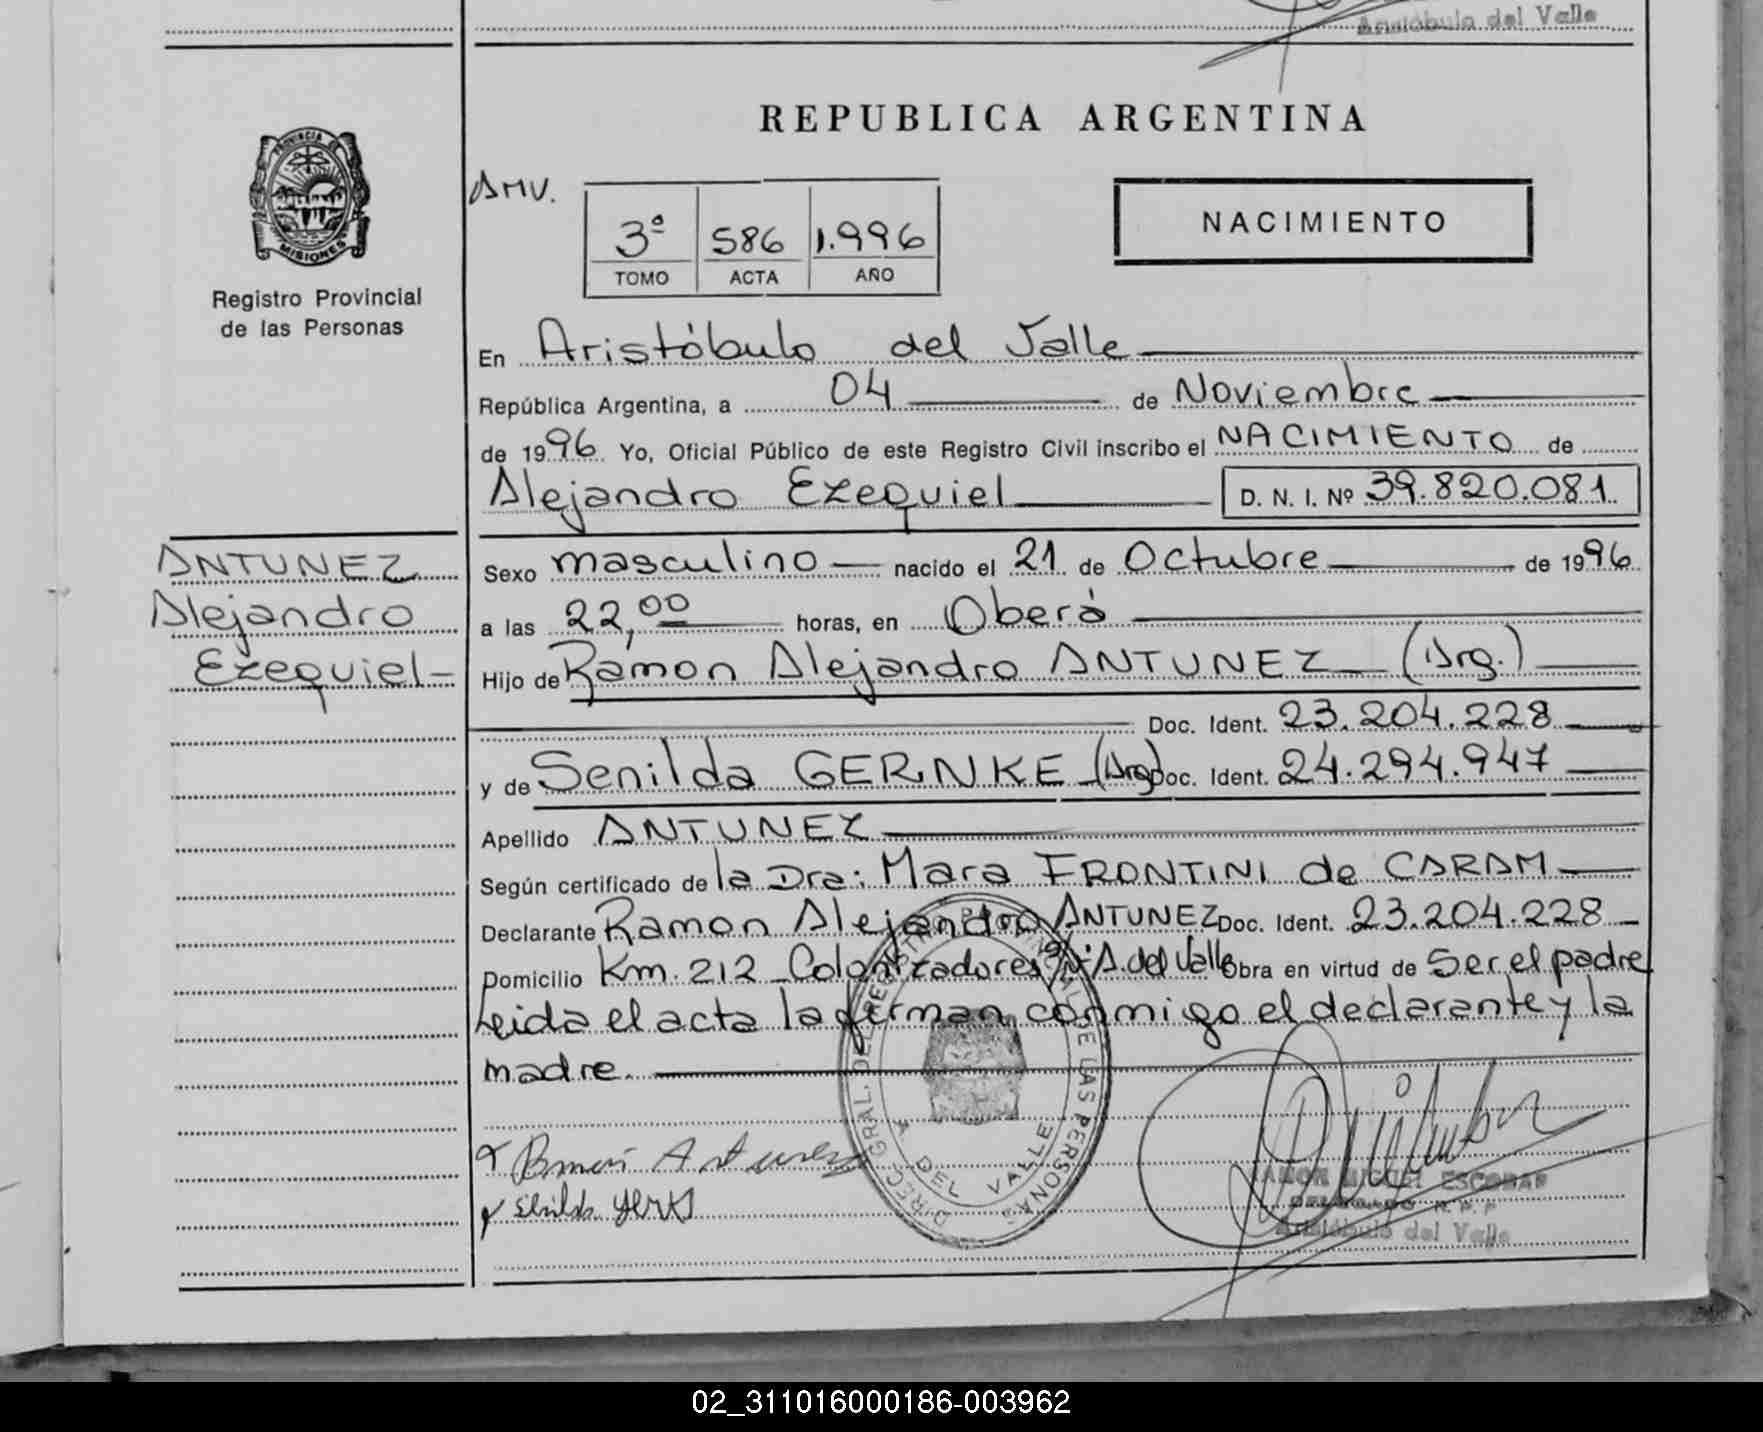 Aristóbulo del Valle
REPUBLICA ARGENTINA
PROVINCIA DE
MISIONES
Registro Provincial
de las Personas
AMV.
3º 586 1.996
TOMO ACTA AÑO
NACIMIENTO
En Aristóbulo del Valle
República Argentina, a 04 de Noviembre
de 1996 Yo, Oficial Público de este Registro Civil inscribo el NACIMIENTO de
Alejandro Ezequiel D. N. I. Nº 39.820.081
ANTUNEZ
Alejandro
Ezequiel-
Sexo masculino nacido el 21 de Octubre de 1996
a las 22,00 horas, en Oberá
Hijo de Ramon Alejandro ANTUNEZ (Arg.)
Doc. Ident. 23.204.228
y de Senilda GERNKE (Arg) Doc. Ident. 24.294.947
Apellido ANTUNEZ
Según certificado de la Dra: Mara FRONTINI de CARAM
Declarante Ramon Alejandro ANTUNEZ Doc. Ident. 23.204.228
Domicilio Km. 212 Colonizadores A. del Valle Obra en virtud de Ser el padre
Leida el acta la firman conmigo el declarante y la
madre.
DIREC. GRAL. DEL REGISTRO PROVINCIAL DE LAS PERSONAS
A. DEL VALLE
Ramón Antunez
RAMON MIGUEL ESCOBAR
DELEGADO R.P.P
Aristóbulo del Valle
02_311016000186-003962